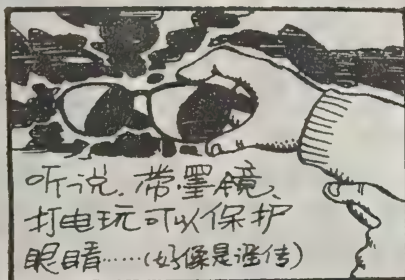 听说.带墨镜、
打电玩可以保护
眼睛……(好像是谣传)